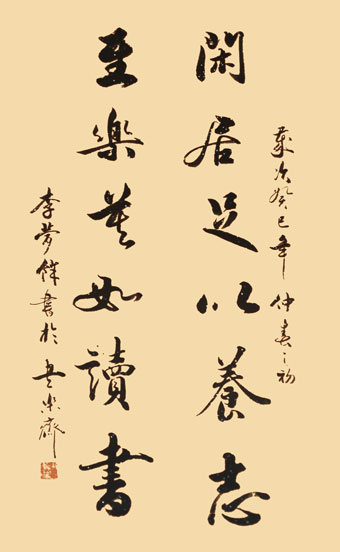 閑居足以養志
至樂莫如讀書
歲次癸巳年仲春之初
李夢餘書於至樂齋